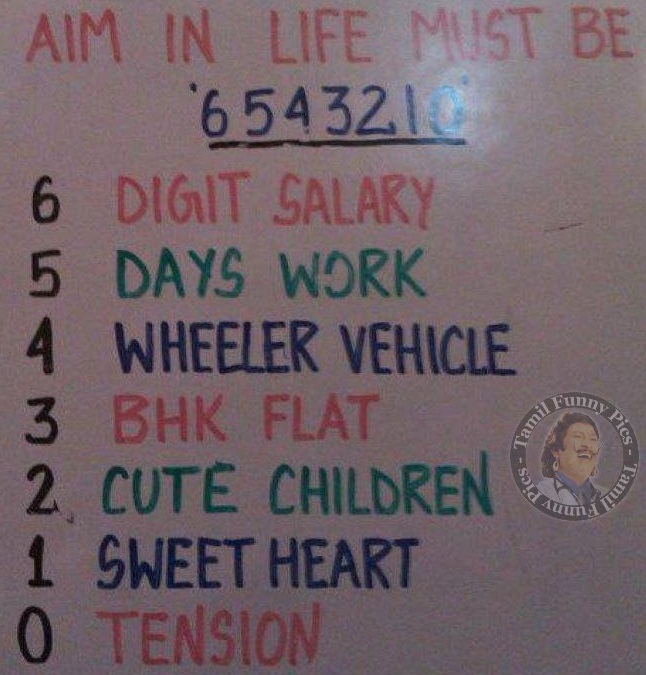 AIM IN LIFE MUST BE
'6543210'
6 DIGIT SALARY
5 DAYS WORK
4 WHEELER VEHICLE
3 BHK FLAT
2 CUTE CHILDREN
1 SWEET HEART
0 TENSION
- Tamil Funny Pics - Tamil Funny Pics